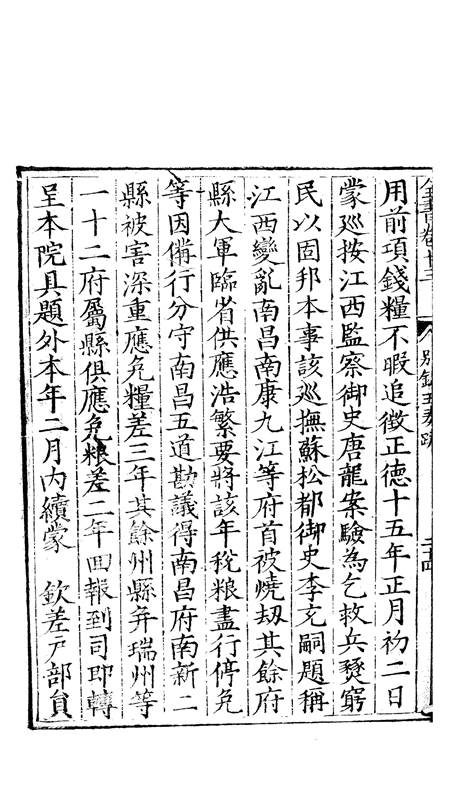 用前項錢糧不暇追徵正德十五年正月初二日
蒙巡按江西監察御史唐龍案驗為乞救兵燹窮
民以固邦本事該巡撫蘇松都御史李充嗣題稱
江西變亂南昌南康九江等府首被燒刼其餘府
縣大軍臨省供應浩繁要將該年稅粮盡行停免
等因備行分守南昌五道勘議得南昌府南新二
縣被害深重應免糧差三年其餘州縣并瑞州等
一十二府屬縣俱應免粮差二年回報到司即轉
呈本院具題外本年二月內續蒙 欽差戸部員